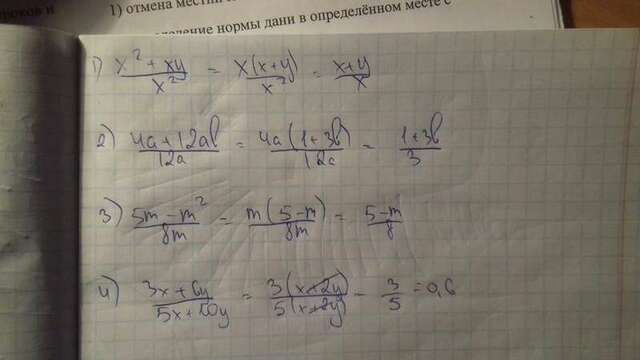 1) отмена
определение нормы дани в определённом месте с
1) x² + xy / x² = x(x+y) / x² = x+y / x
2) 4a + 12ab / 12a = 4a(1+3b) / 12a = 1+3b / 3
3) 5m - m² / 8m = m(5-m) / 8m = 5-m / 8
4) 3x + 6y / 5x + 10y = 3(x+2y) / 5(x+2y) - 3 / 5 = 0,6